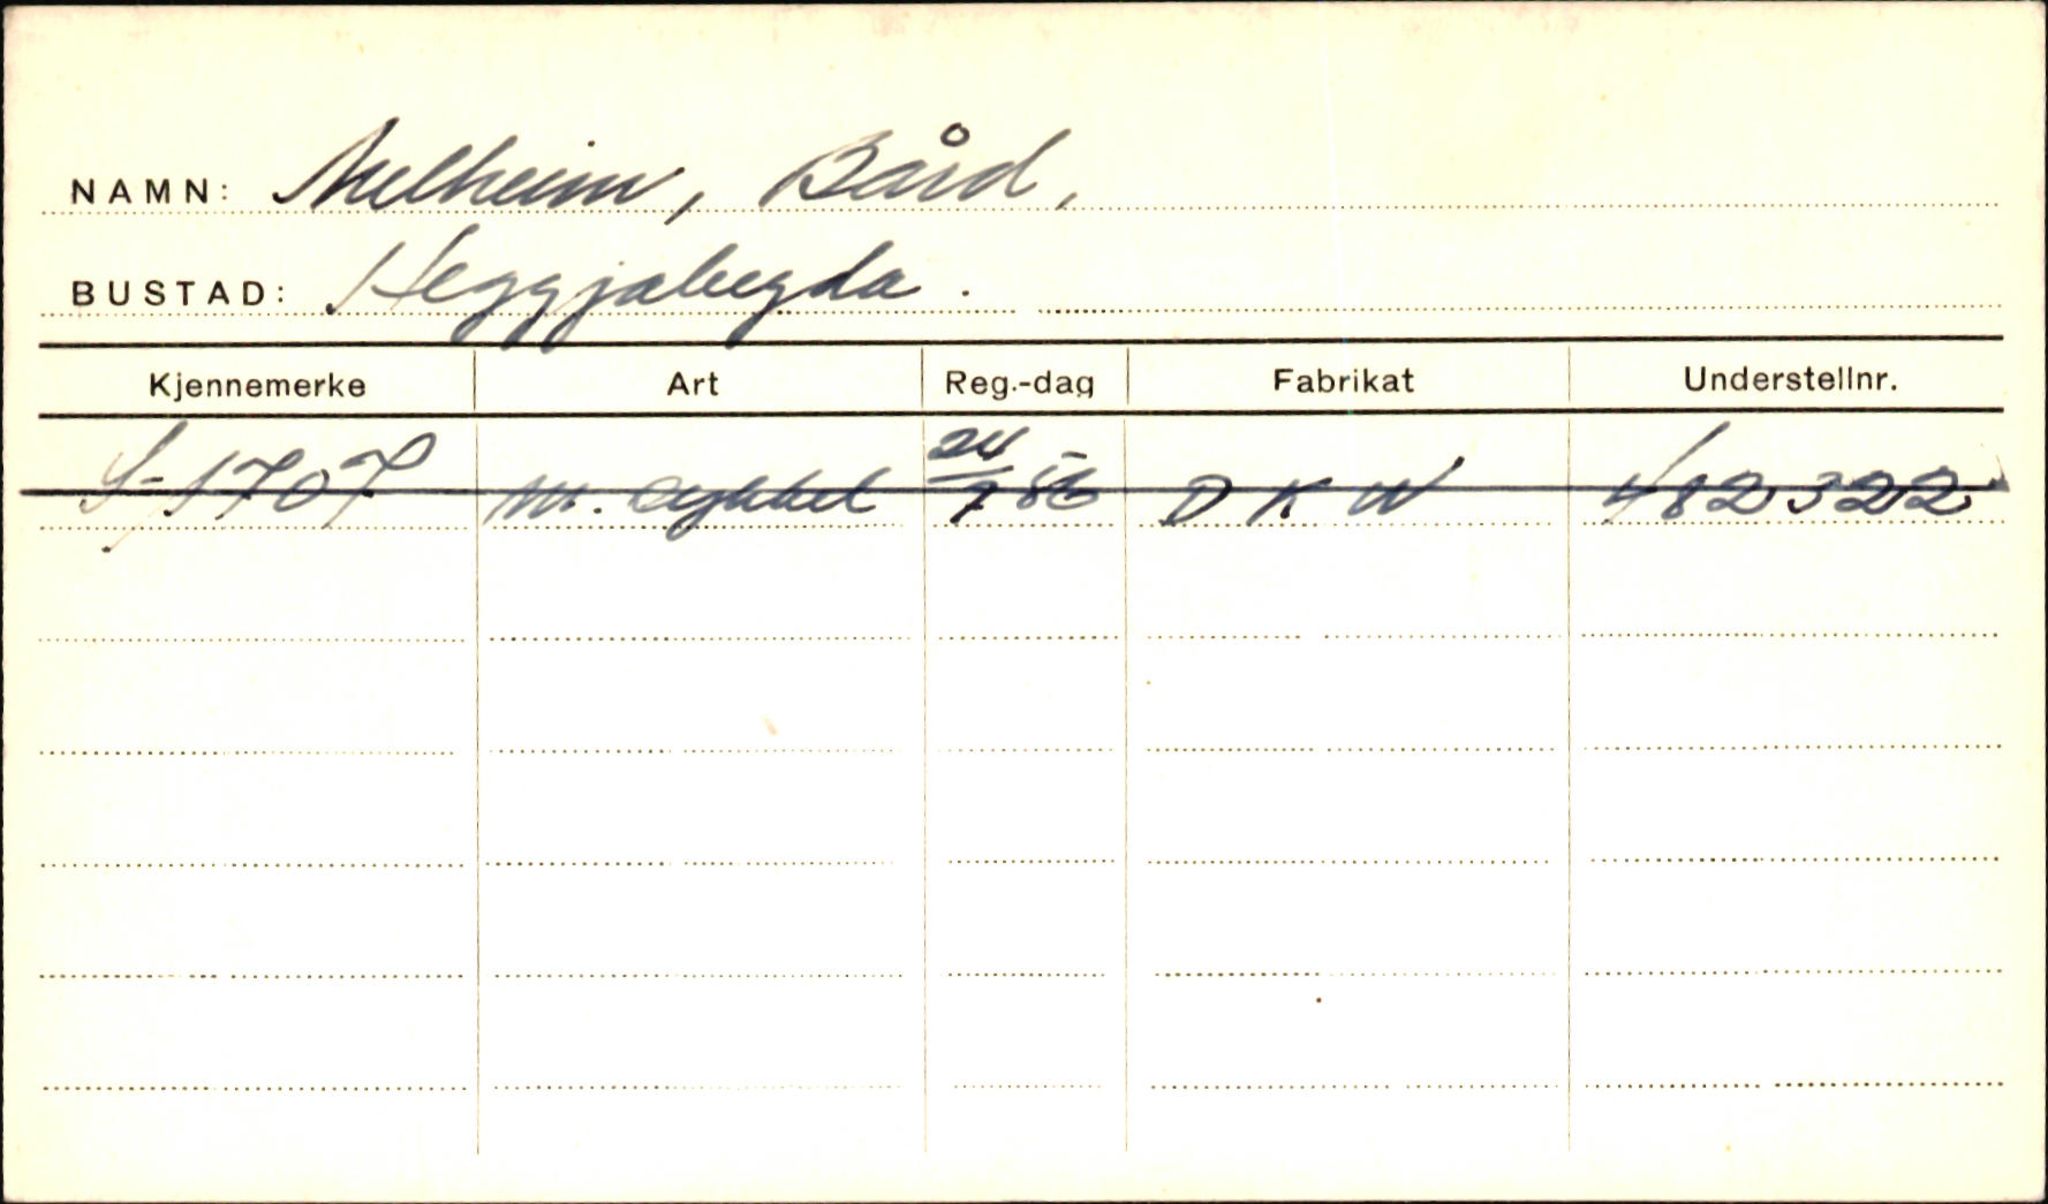 NAMN: Melheim, Bård,
BUSTAD: Heggjabygda.
Kjennemerke Art Reg.-dag Fabrikat Understellnr.
S-1707 M. Sykkel 24/7 56 D K W 482322